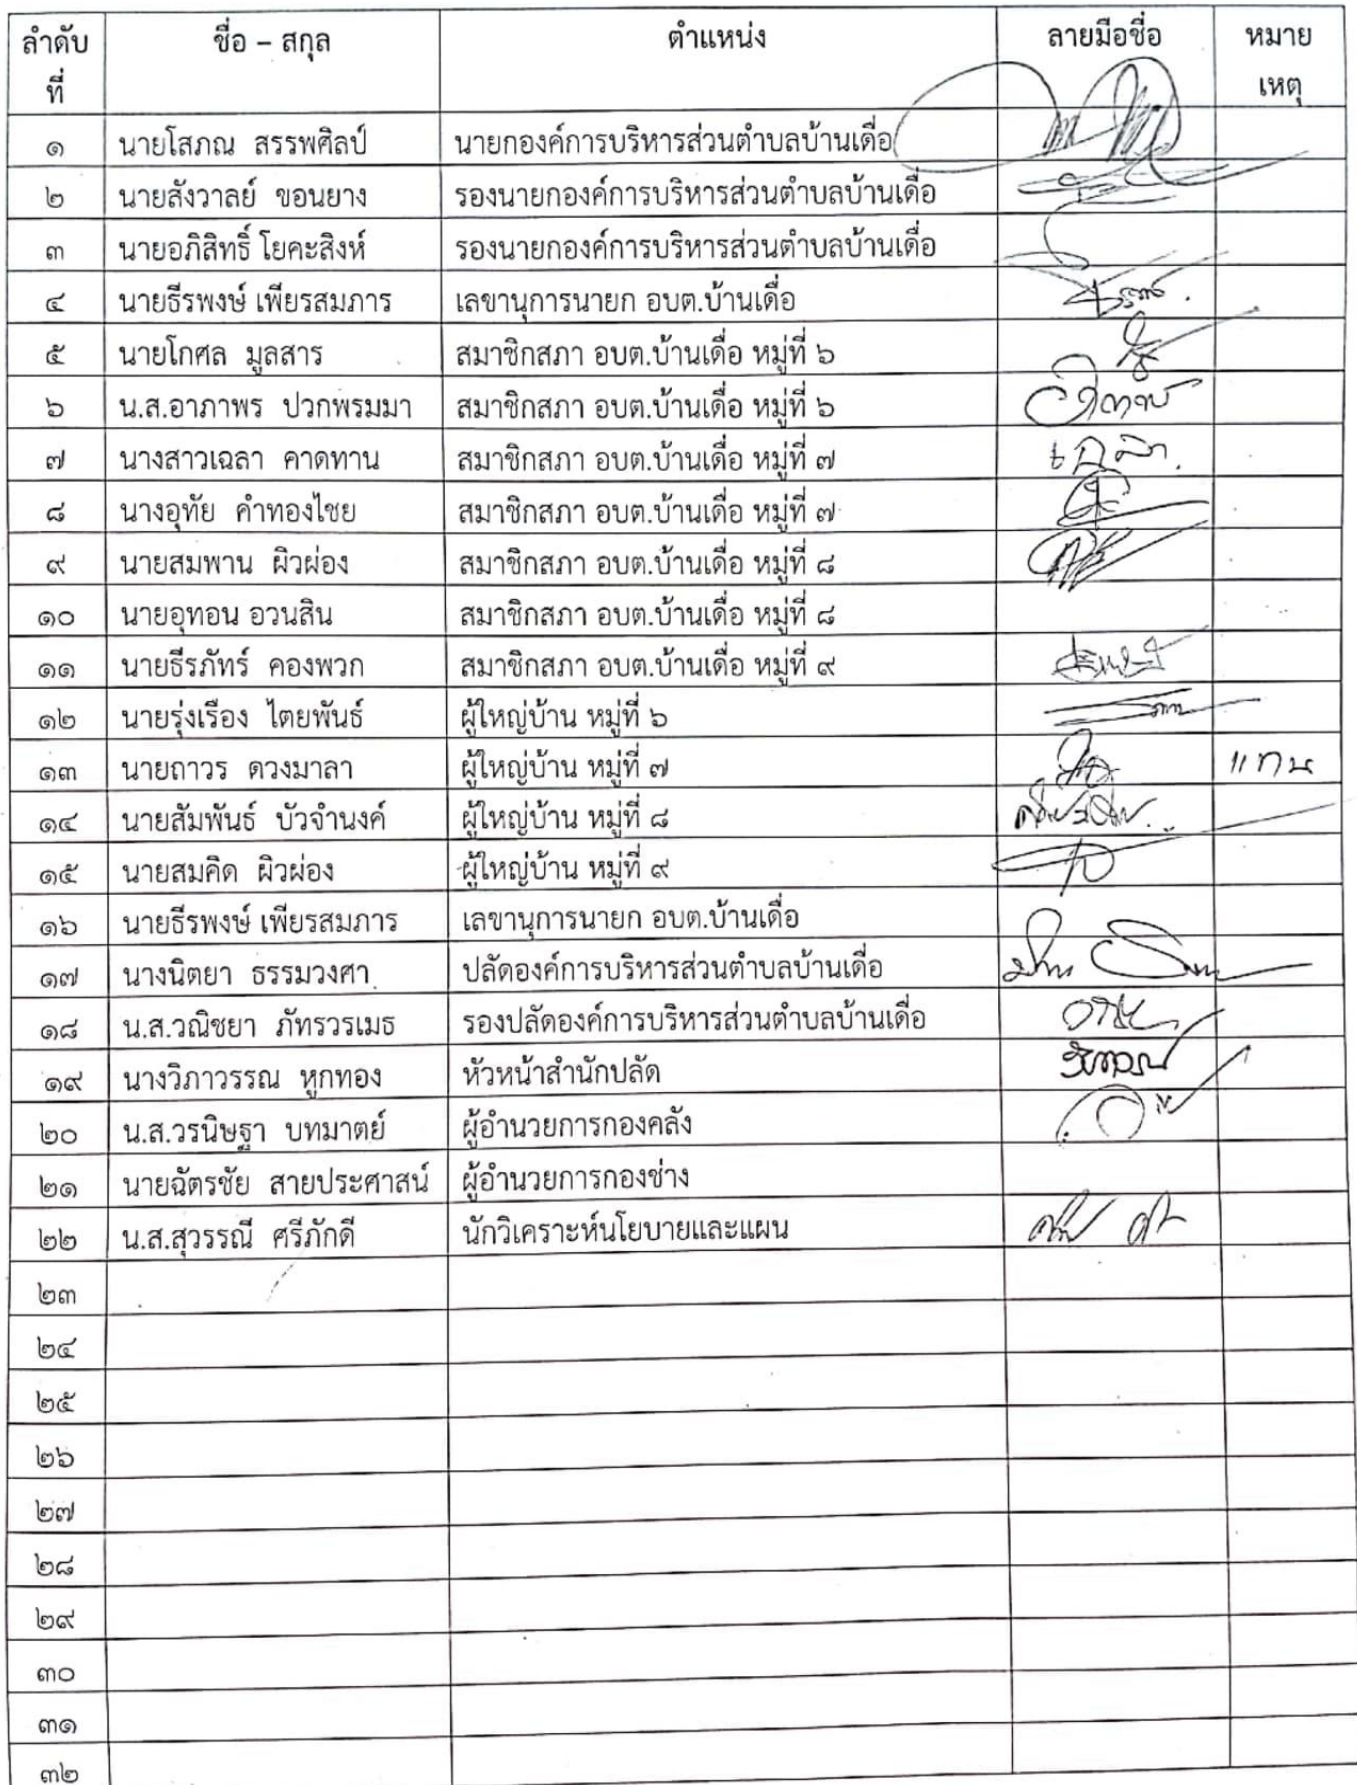 ลำดับที่ ชื่อ – สกุล ตำแหน่ง ลายมือชื่อ หมายเหตุ
๑ นายโสภณ สรรพศิลป์ นายกองค์การบริหารส่วนตำบลบ้านเดื่อ
๒ นายสังวาลย์ ขอนยาง รองนายกองค์การบริหารส่วนตำบลบ้านเดื่อ
๓ นายอภิสิทธิ์ โยคะสิงห์ รองนายกองค์การบริหารส่วนตำบลบ้านเดื่อ
๔ นายธีรพงษ์ เพียรสมภาร เลขานุการนายก อบต.บ้านเดื่อ
๕ นายโกศล มูลสาร สมาชิกสภา อบต.บ้านเดื่อ หมู่ที่ ๖
๖ น.ส.อาภาพร ปวกพรมมา สมาชิกสภา อบต.บ้านเดื่อ หมู่ที่ ๖
๗ นางสาวเฉลา คาดทาน สมาชิกสภา อบต.บ้านเดื่อ หมู่ที่ ๗
๘ นางอุทัย คำทองไชย สมาชิกสภา อบต.บ้านเดื่อ หมู่ที่ ๗
๙ นายสมพาน ผิวผ่อง สมาชิกสภา อบต.บ้านเดื่อ หมู่ที่ ๘
๑๐ นายอุทอน อวนสิน สมาชิกสภา อบต.บ้านเดื่อ หมู่ที่ ๘
๑๑ นายธีรภัทร์ คองพวก สมาชิกสภา อบต.บ้านเดื่อ หมู่ที่ ๙
๑๒ นายรุ่งเรือง ไตยพันธ์ ผู้ใหญ่บ้าน หมู่ที่ ๖
๑๓ นายถาวร ดวงมาลา ผู้ใหญ่บ้าน หมู่ที่ ๗ แทน
๑๔ นายสัมพันธ์ บัวจำนงค์ ผู้ใหญ่บ้าน หมู่ที่ ๘
๑๕ นายสมคิด ผิวผ่อง ผู้ใหญ่บ้าน หมู่ที่ ๙
๑๖ นายธีรพงษ์ เพียรสมภาร เลขานุการนายก อบต.บ้านเดื่อ
๑๗ นางนิตยา ธรรมวงศา ปลัดองค์การบริหารส่วนตำบลบ้านเดื่อ
๑๘ น.ส.วณิชยา ภัทรวรเมธ รองปลัดองค์การบริหารส่วนตำบลบ้านเดื่อ
๑๙ นางวิภาวรรณ หูกทอง หัวหน้าสำนักปลัด
๒๐ น.ส.วรนิษฐา บทมาตย์ ผู้อำนวยการกองคลัง
๒๑ นายฉัตรชัย สายประศาสน์ ผู้อำนวยการกองช่าง
๒๒ น.ส.สุวรรณี ศรีภักดี นักวิเคราะห์นโยบายและแผน
๒๓
๒๔
๒๕
๒๖
๒๗
๒๘
๒๙
๓๐
๓๑
๓๒